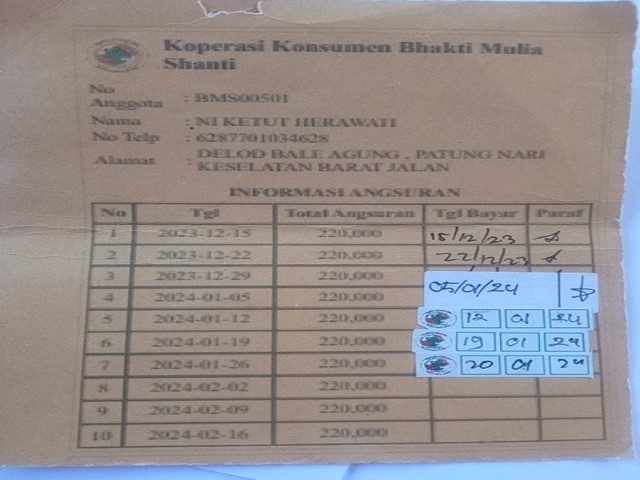 Koperasi Konsumen Bhakti Mulia
Shanti
No
Anggota : BMS00501
Nama : NI KETUT HERAWATI
No Telp : 6287701034628
Alamat : DELOD BALE AGUNG , PATUNG NARI
KESELATAN BARAT JALAN
INFORMASI ANGSURAN
No Tgl Total Angsuran Tgl Bayar Paraf
1 2023-12-15 220,000 15/12/23
2 2023-12-22 220,000 22/12/23
3 2023-12-29 220,000
4 2024-01-05 220,000 05/01/24
5 2024-01-12 220,000 12 01 24
6 2024-01-19 220,000 19 01 24
7 2024-01-26 220,000 20 01 24
8 2024-02-02 220,000
9 2024-02-09 220,000
10 2024-02-16 220,000